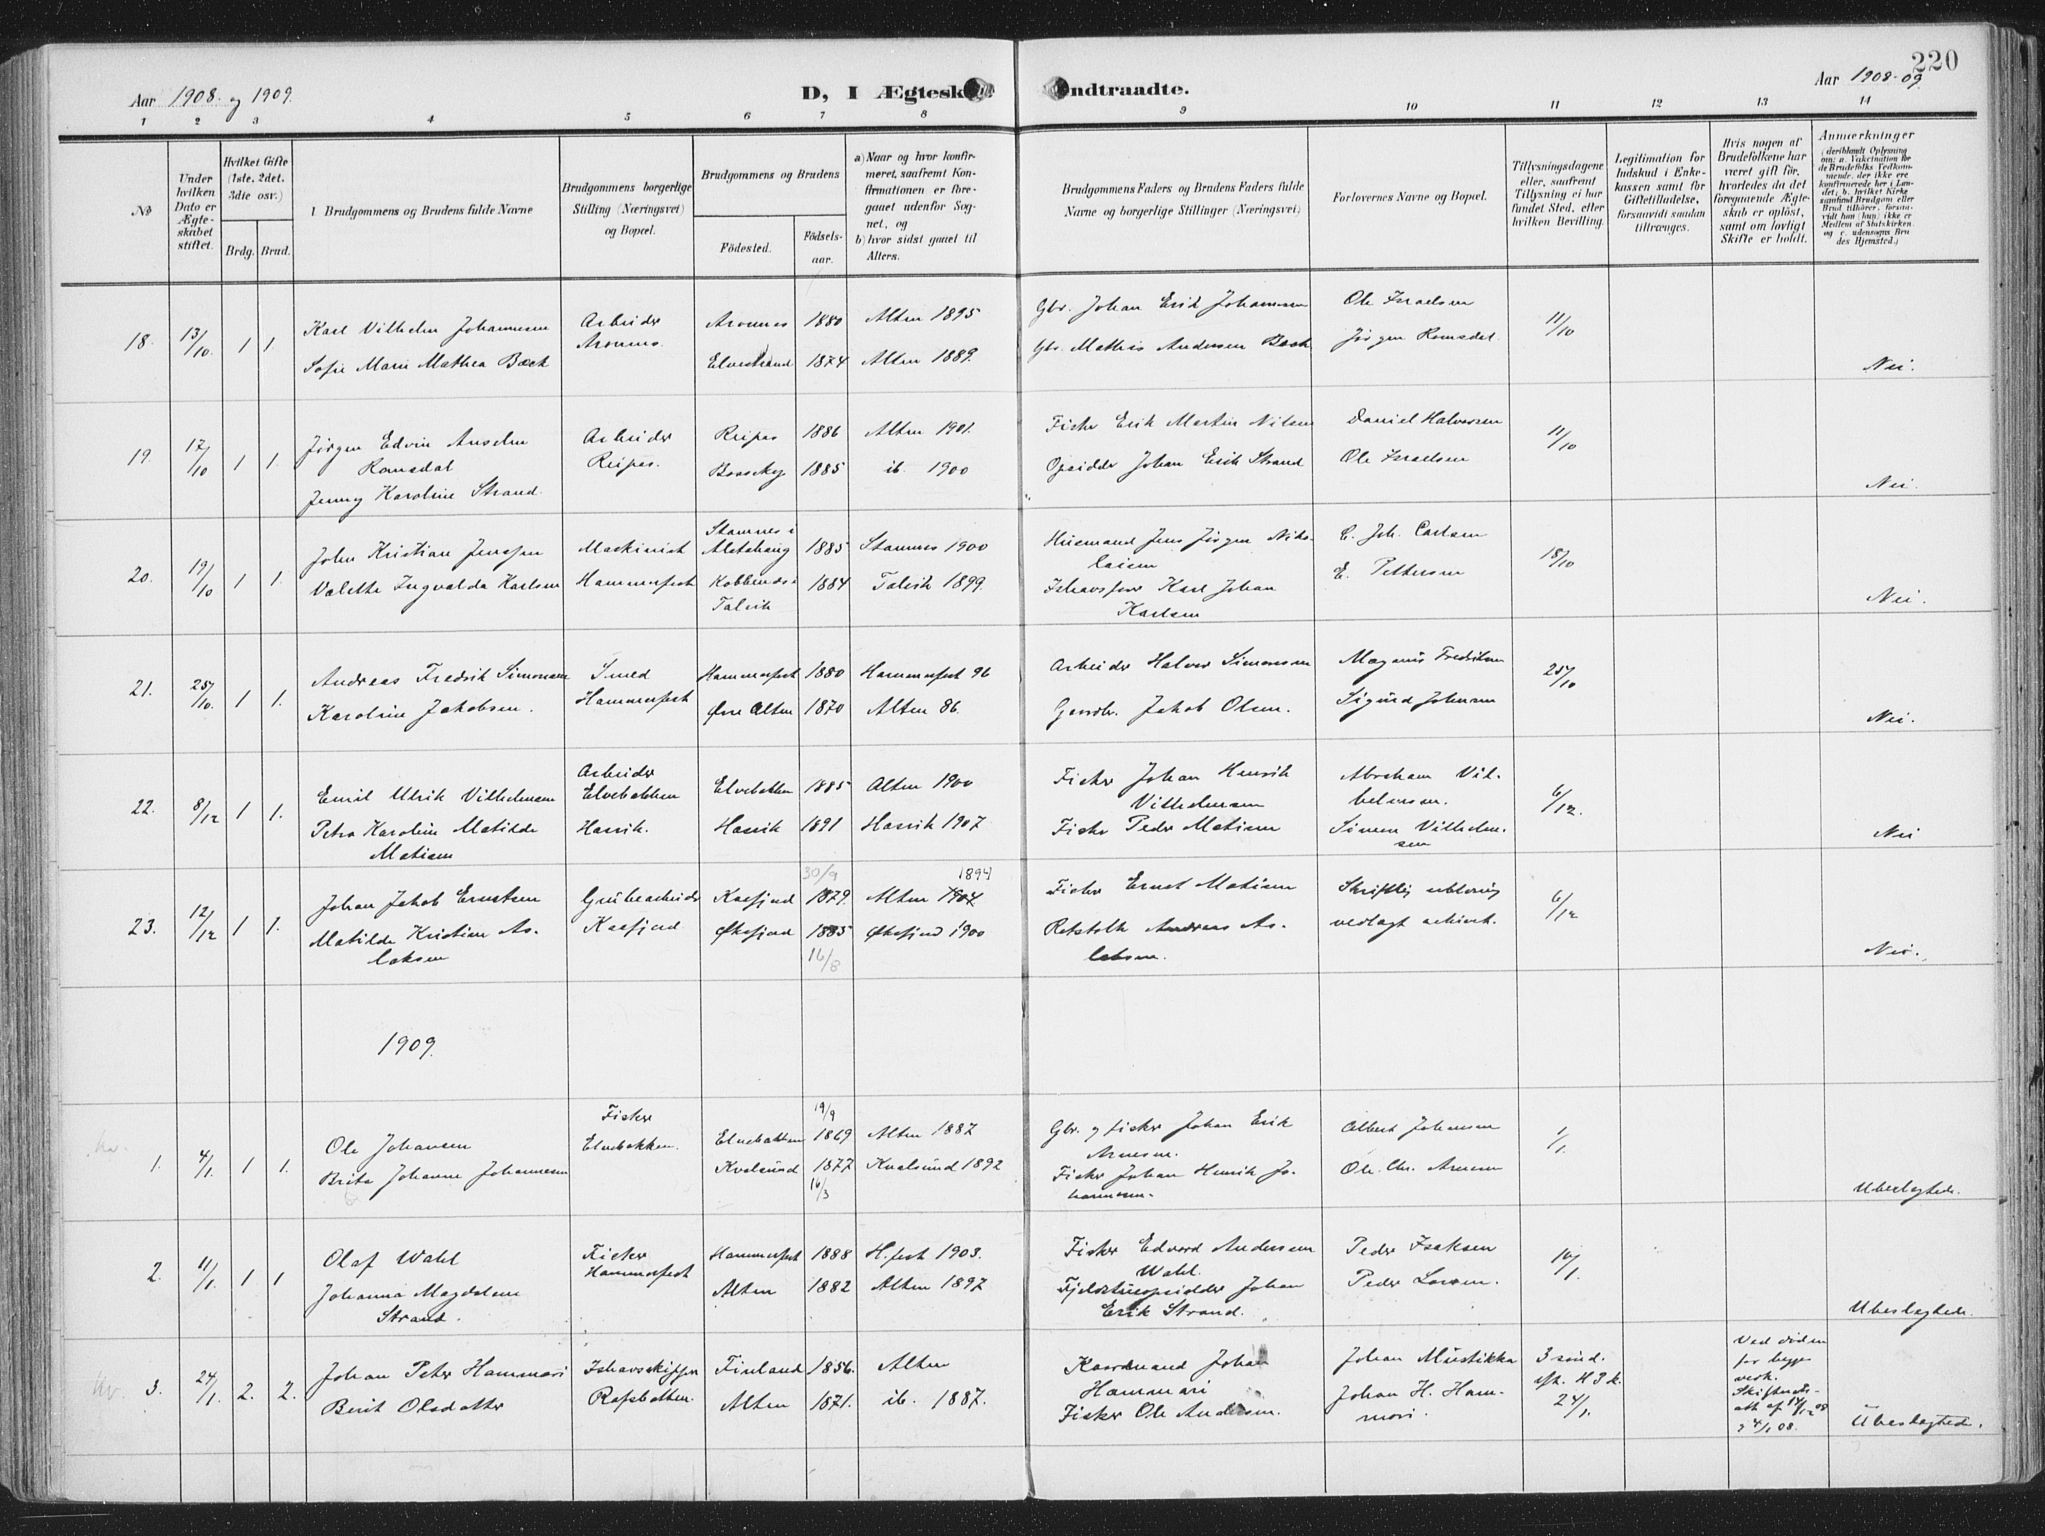 220
Aar 1908 og 1909.
D, I Ægtesk
ndtraadte.
Aar 1908-09
1 2 3 4 5 6 7 8 9 10 11 12 13 14
No
Under hvilken Dato er Ægteskabet stiftet.
Hvilket Gifte (1ste, 2det, 3die osv.)
Brdg. Brud.
Brudgommens og Brudens fulde Navne
Brudgommens borgerlige Stilling (Næringsvei) og Bopæl.
Brudgommens og Brudens
Fødested.
Fødselsaar.
a) Naar og hvor konfirmeret, saafremt Konfirmationen er foregaaet udenfor Sognet, og
b) hvor sidst gaaet til Alters.
Brudgommens Faders og Brudens Faders fulde Navne og borgerlige Stillinger (Næringsvei)
Forlovernes Navne og Bopæl.
Tillysningsdagene eller, saafremt Tillysning ei har fundet Sted, efter hvilken Bevilling.
Legitimation for Indskud i Enkekassen samt for Giftetilladelse, forsaavidt saadan tiltrænges.
Hvis nogen af Brudefolkene har været gift før, hvorledes da det foregaaende Ægteskab er opløst, samt om lovligt Skifte er holdt.
Anmerkninger
(deriblandt Oplysning om: a. Vakcination for de Brudefolks Vedkommende, der ikke ere konfirmerede her i Landet; b. hvilket Kirkesamfund Brudgom eller Brud tilhører, forsaavidt han (hun) ikke er Medlem af Statskirken, og c. udensogns Brudes Hjemsted.)
18. 13/10. 1 1. Karl Vilhelm Johannesen Arbeider Aronnes Aronnes 1880 Alten 1895 Gbr. Johan Erik Johannesen Ole Israelsen 11/10
Sofie Marie Mathea Bæck Elvestrand 1874 Alten 1889. Gbr. Mathis Andersen Beck Jørgen Romsdal. Nei.
19. 17/10 1 1. Jørgen Edvin Anselm Romsdal Arbeider Reipas. Reipas 1886 Alten 1901. Fisker Erik Martin Nilsen Daniel Halvorsen 11/10
Jenny Karoline Strand. Bossekop 1885 ib. 1900 Opsidder Johan Erik Strand Ole Israelsen Nei.
20. 19/10 1 1. John Kristian Jenssen Maskinist Hammerfest Stamnes i Alstahaug 1885 Stamnes 1900 Husmand Jens Jørgen Nikolaisen C. Joh. Carlsen 18/10
Valetta Ingvalda Karlsen Talvik 1884 Talvik 1899. Ishavsfarer Karl Johan Karlsen E. Pettersen Nei.
21. 25/10. 1 1. Andreas Fredrik Simonsen Smed Hammerfest Hammerfest 1880 Hammerfest 96 Arbeider Halvor Simonsen Magnus Fredriksen 25/10
Karoline Jakobsen. Øvre Alten 1870 Alten 86. Jakob Olsen. Sigurd Johnsen Nei.
22. 8/12 1 1. Emil Ulrik Vilhelmsen Arbeider Elvebakken Elvebakken 1885 Alten 1900 Fisker Johan Henrik Vilhelmsen Abraham Vilhelmsen. 6/12.
Petra Karoline Matilde Matisen Hasvik. Hasvik 1891 Hasvik 1907. Fisker Peder Matisen Simon Vilhelmsen Nei
23. 12/12 1 1. Johan Jakob Ernstsen Grubearbeider Kaafjord Kaafjord 30/9 1879. Alten 1904 1894 Fisker Ernst Matisen Skriftlig erklæring vedlagt arkivet. 6/12
Matilde Kristine Aslaksen Øksfjord 1885 16/8 Øksfjord 1900 Andreas Aslaksen. Nei.
1909.
1. 4/1. 1 1. Ole Johansen Fisker Elvebakken. Elvebakken 19/9 1869 Alten 1887 Gbr. og fisker Johan Erik Arnesen. Albert Johansen 1/1.
Brita Johanne Johannesen Kvalsund 1877 16/3 Kvalsund 1892 Fisker Johan Henrik Johannesen. Ole Chr. Arnesen Ubeslægtede.
2. 11/1. 1 1 Olaf Wahl Fisker Hammerfest Hammerfest 1888 H.fest 1903. Fisker Edvard Andersen Wahl. Peder Isaksen 10/1.
Johanna Magdalena Strand. Alten 1882 Alten 1897 Fjeldstueopsidder Johan Erik Strand. Peder Larsen. Ubeslægtede.
3. 24/1. 2. 2. Johan Peter Hammari Ishavsskipper Rafsbotten. Finland 1856. Alten Johan Hammari Johan Mustikka 3 sønd. eft. H 3 k. 24/1. Ved døden for begge vedk. Skifteratt. af 14/12 08 og 4/1 08.
Berit Olsdatter Alten 1871. ib. 1887. Fisker Ole Andersen. Johan H. Hammari. Ubeslægtede.